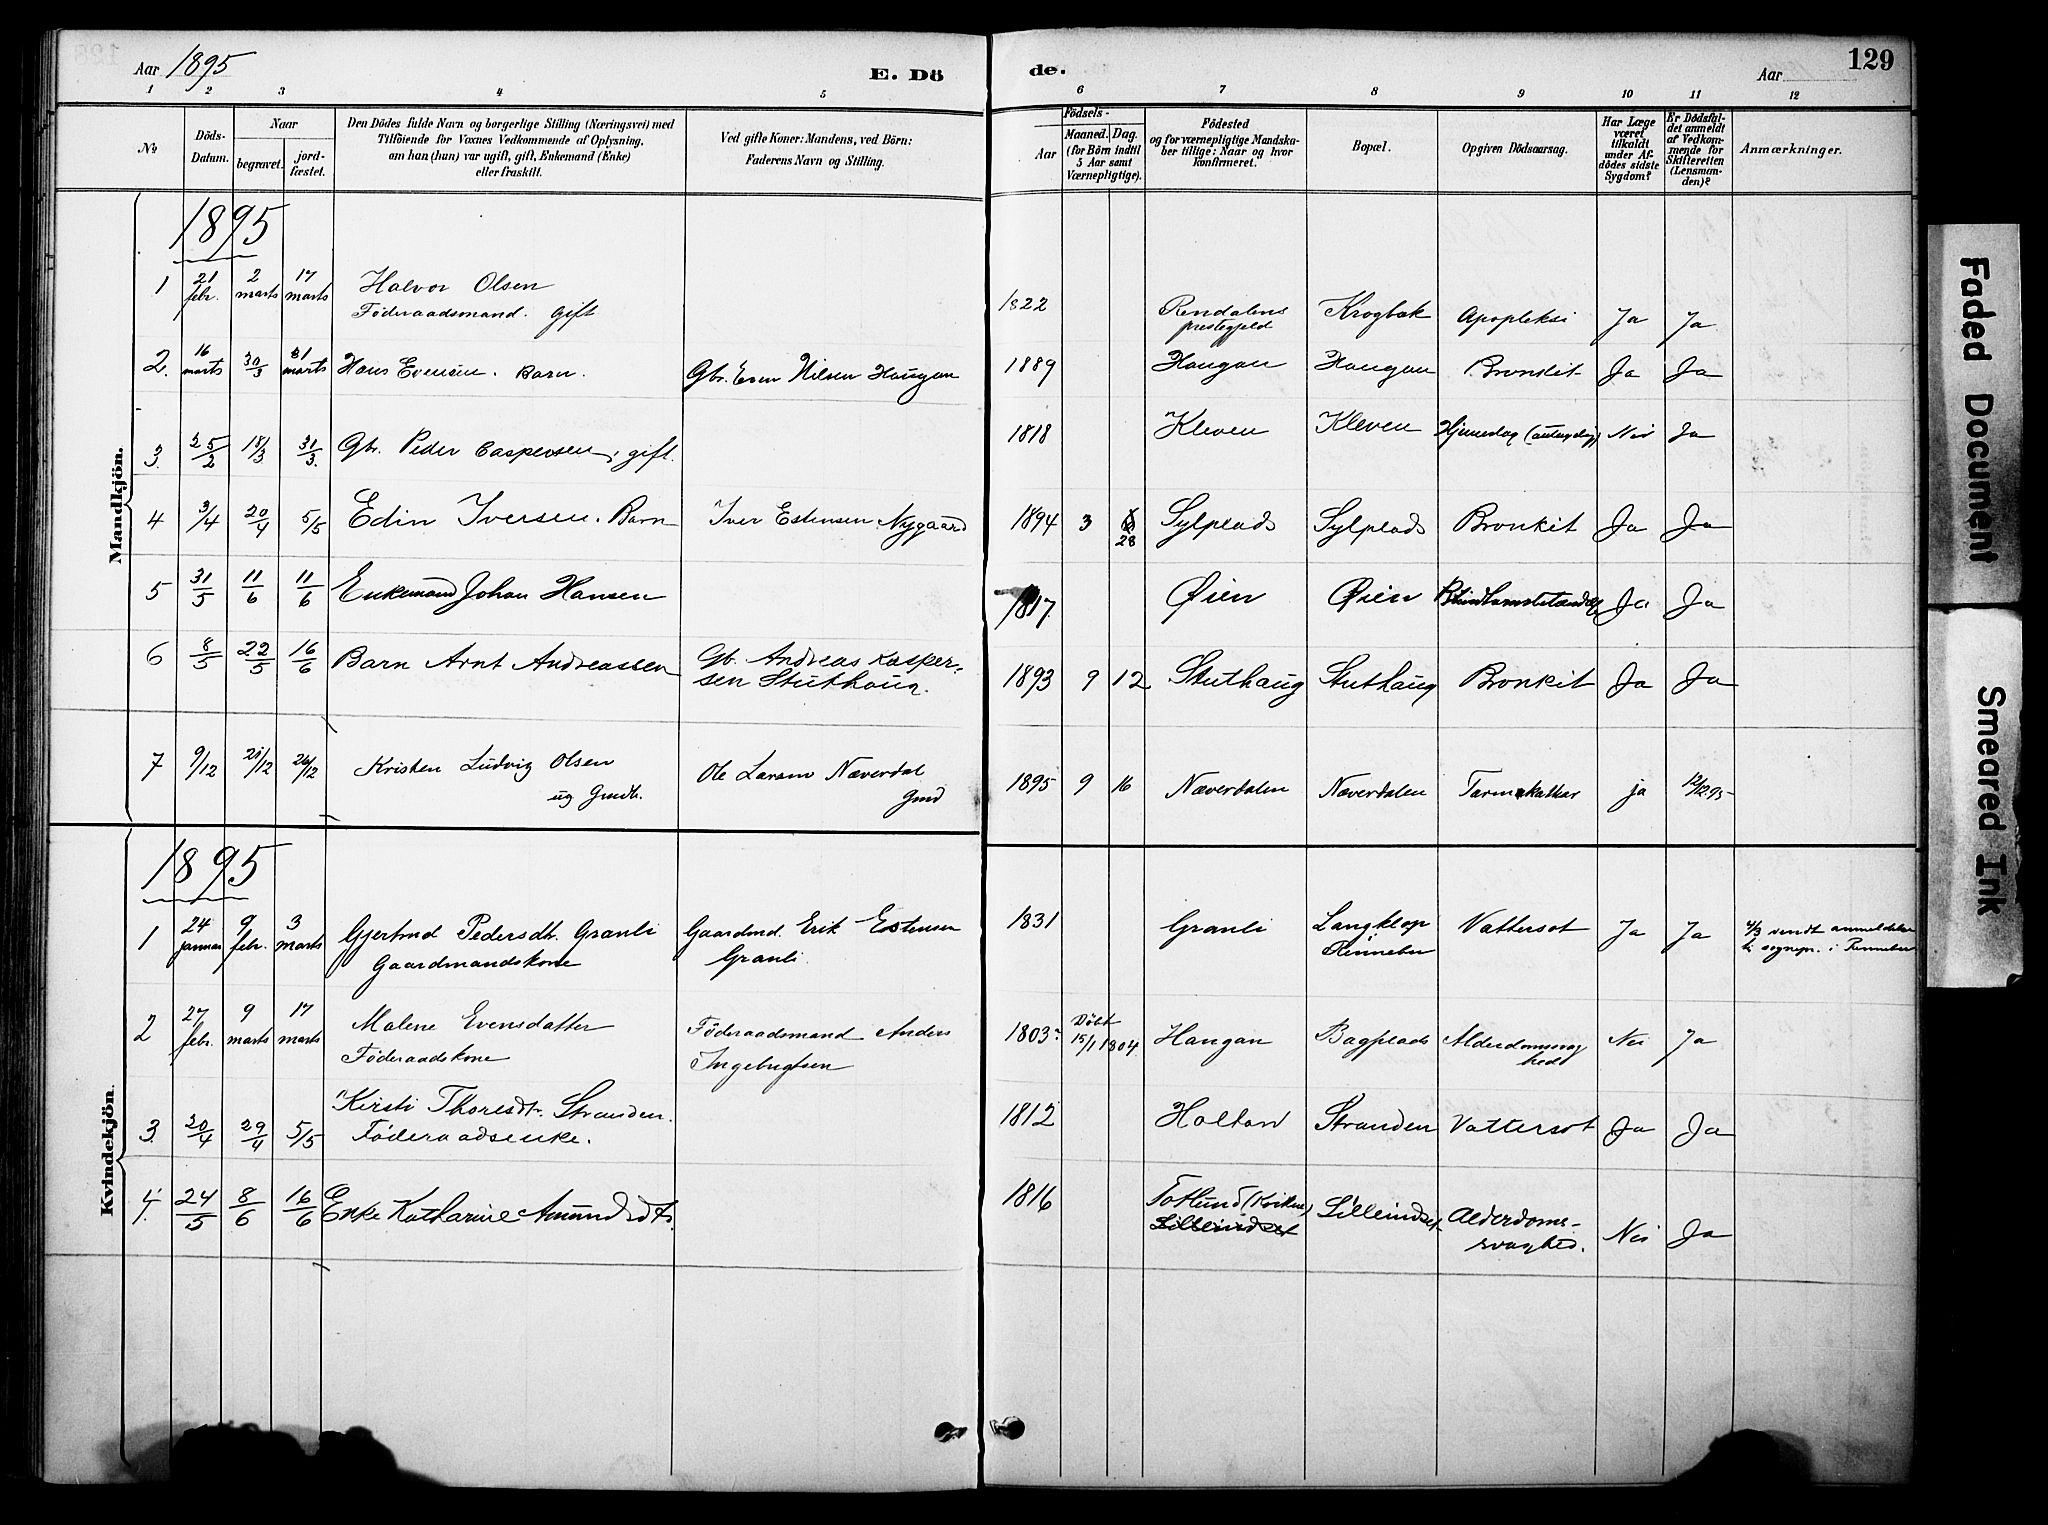 Aar 1895 E. Dö de. Aar 129
1 2 3 4 5 6 7 8 9 10 11 12
No Döds-Datum. Naar begravet. jordfæstet. Den Dödes fulde Navn og borgerlige Stilling (Næringsvei) med Tilföiende for Voxnes Vedkommende af Oplysning, om han (hun) var ugift, gift, Enkemand (Enke) eller fraskilt. Ved gifte Koner: Mandens, ved Börn: Faderens Navn og Stilling. Födsels- Aar Maaned. Dag. (for Börn indtil 5 Aar samt Værnepligtige). Födested og for værnepligtige Mandskaber tillige: Naar og hvor konfirmeret. Bopæl. Opgiven Dödsaarsag. Har Læge været tilkaldt under Afdödes sidste Sygdom? Er Dödsfaldet anmeldt af Vedkommende for Skifteretten (Lensmanden)? Anmærkninger.
Mandkjön.
1895
1 21 febr. 2 marts 17 marts Halvor Olsen Föderaadsmand. gift 1822 Rendalens prestegjeld Krogbæk Apopleksi Ja Ja
2. 16 marts 30/3 31 marts Hans Evensen. Barn. Gbr. Even Nilsen Haugan 1889 Haugan Haugan Bronkit Ja Ja
3. 25/2 18/3 31/3. Gbr. Peder Caspersen, gift. 1818 Kleven Kleven Nei Ja
4 3/4 20/4 5/5 Edin Iversen. Barn Iver Estensen Nygaard 1894 3 28 Sylplads Sylplads Bronkit Ja Ja
5 31/5 11/6 11/6 Enkemand Johan Hansen 1817. Øien Øien Ja Ja
6 8/5 22/5 16/6 Barn Arnt Andreassen Gb. Andreas Kaspersen Stuthaug. 1893 9 12 Stuthaug Stuthaug Bronkit Ja Ja
7 9/12 21/12 26/12 Kristen Ludvig Olsen ug Gmdb. Ole Larsen Næverdal Gmd 1895 9 16 Næverdalen Næverdalen Tarmkatkar ja 12/12 95
Kvindekjön.
1895
1 24 januar 9 febr. 3 marts Gjertrud Pedersdt. Granli Gaardmandskone Gaardmd. Erik Estensen Granli 1831 Granli Langklop Rinnebu Vattersot Ja Ja 4/3 sendt anmeldelse til sognepr. i Rennebu
2 27 febr. 9 marts 17 marts Malene Evensdatter Föderaadskone Föderaadsmand Anders Ingebrigtsen 1803 Döbt 15/1 1804 Haugan Bagplads Alderdomssvaghed Nei Ja
3. 20/4 29/4 5/5 Kirsti Thoresdt. Stranden. Föderaadsenke. 1812 Holtan Stranden Vattersot Ja Ja
4. 24/5 8/6 16/6 Enke Katharine Amundsdt. 1816 Totlund (Kvikne) Lilleindset Lilleindset Alderdomssvaghed. Nei Ja
Faded Document
Smeared Ink